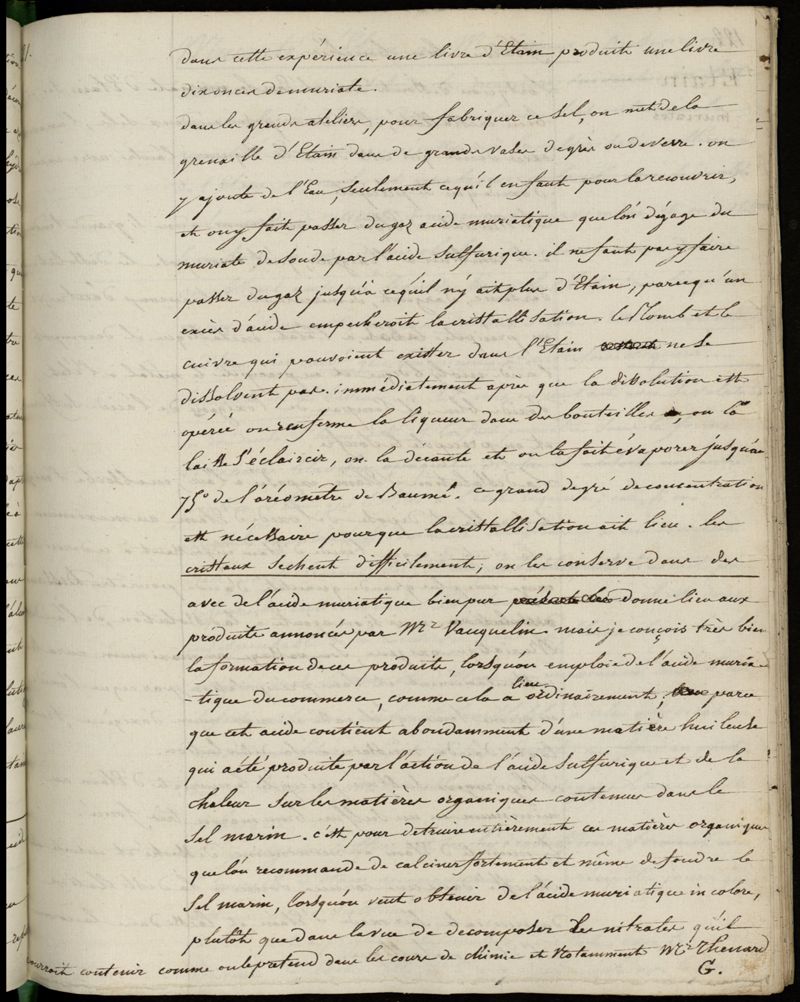 dans cette expérience une livre d'Etain produit une livre
dix onces de muriate.
dans les grands ateliers, pour fabriquer ce sel, on met de la
grenaille d'Etain dans de grands vases de grès ou de verre. on
y ajoute de l'Eau, seulement ce qu'il en faut pour la recouvrir,
et on y fait passer du gaz acide muriatique que l'on dégage du
muriate de soude par l'acide sulfurique. il ne faut pas y faire
passer du gaz jusqu'à ce qu'il n'y ait plus d'Etain, parce qu'un
excès d'acide empecheroit la cristallisation. le Plomb et le
cuivre qui pouvoient exister dans l'Etain ne se
dissolvent pas. immédiatement après que la dissolution est
opérée on renferme la liqueur dans des bouteilles, on la
laisse s'éclaircir, on la décante et on la fait évaporer jusqu'à
75° de l'aréometre de Baumé. ce grand degré de concentration
est nécessaire pour que la cristallisation ait lieu. les
cristaux sechent difficilement; on les conserve dans des
avec de l'acide muriatique bien pur donne lieu aux
produits annoncés par Mr Vauquelin mais je conçois très bien
la formation de ces produits, lorsqu'on emploie de l'acide muria-
-tique du commerce, comme cela a lieu ordinairement, parce
que cet acide contient abondamment d'une matière huileuse
qui a été produite par l'action de l'acide sulfurique et de la
chaleur sur les matières organiques contenues dans le
sel marin. c'est pour detruire entièrement ces matières organiques
que l'on recommande de calciner fortement et même de fondre le
sel marin, lorsqu'on veut obtenir de l'acide muriatique incolore,
plutôt que dans la vue de decomposer les nitrates qu'il
pourroit contenir comme on le pretend dans les cours de chimie et notamment Mr Thenard
G.